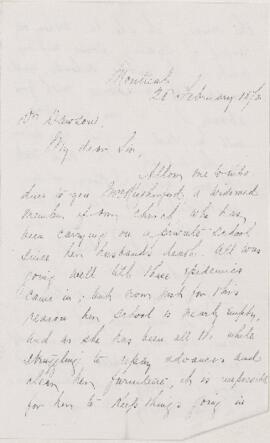 Montreal
26 February 187
Dr Dawson,
My dear Sir,
Allow me to intro
duce to you Mrs a widowed
member of my church who has
been carrying on a private school
since her husband's death. All was
going well till these epidemics
came in; but now just for this
reason her school is nearly empty,
and as she has been all the while
struggling to repay advances and
her furniture, it is impossible
for her to keep things going in